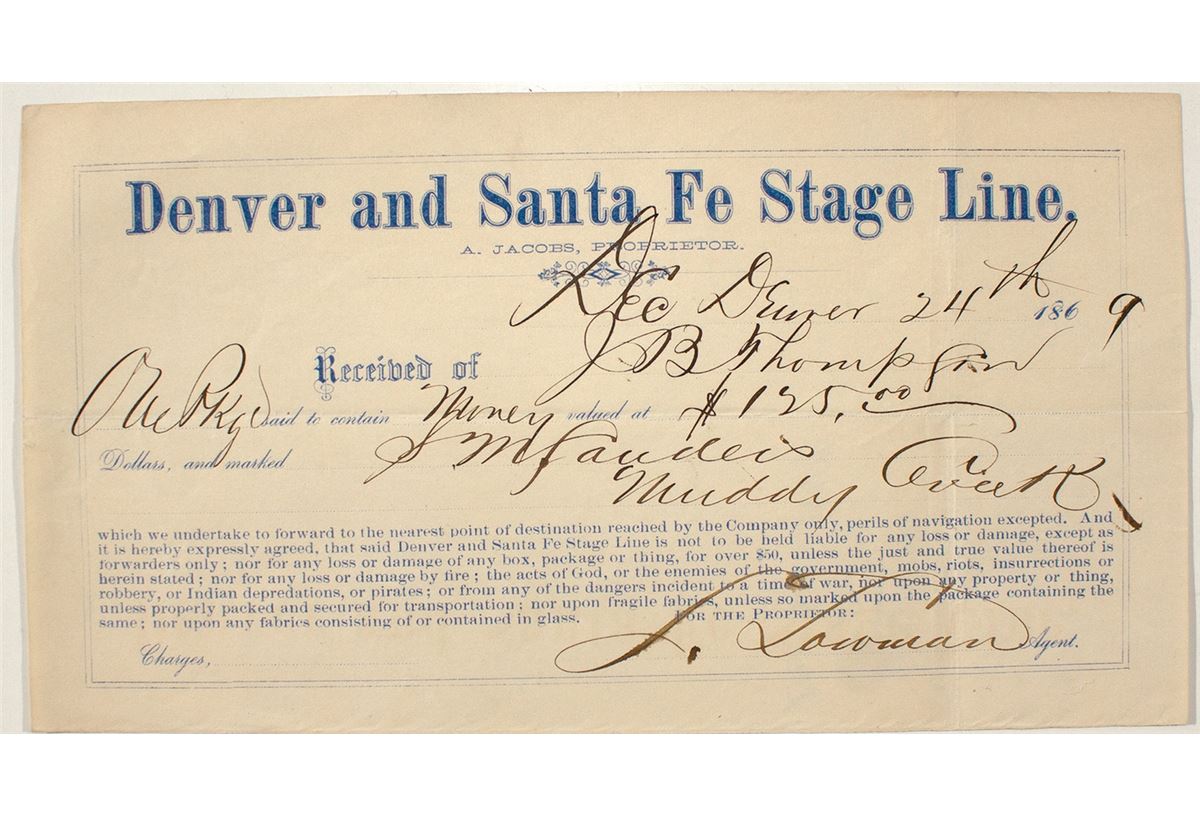 Denver and Santa Fe Stage Line.
A. JACOBS, PROPRIETOR.
Dec Denver 24th 1869
Received of J B Thompson
One Pkg said to contain Money valued at $125.00
Dollars, and marked S M Sanders
Muddy Creek
which we undertake to forward to the nearest point of destination reached by the Company only, perils of navigation excepted. And
it is hereby expressly agreed, that said Denver and Santa Fe Stage Line is not to be held liable for any loss or damage, except as
forwarders only; nor for any loss or damage of any box, package or thing, for over $50, unless the just and true value thereof is
herein stated; nor for any loss or damage by fire; the acts of God, or the enemies of the government, mobs, riots, insurrections or
robbery, or Indian depredations, or pirates; or from any of the dangers incident to a time of war, nor upon any property or thing,
unless properly packed and secured for transportation; nor upon fragile fabrics, unless so marked upon the package containing the
same; nor upon any fabrics consisting of or contained in glass. FOR THE PROPRIETOR:
Charges, Lowman Agent.